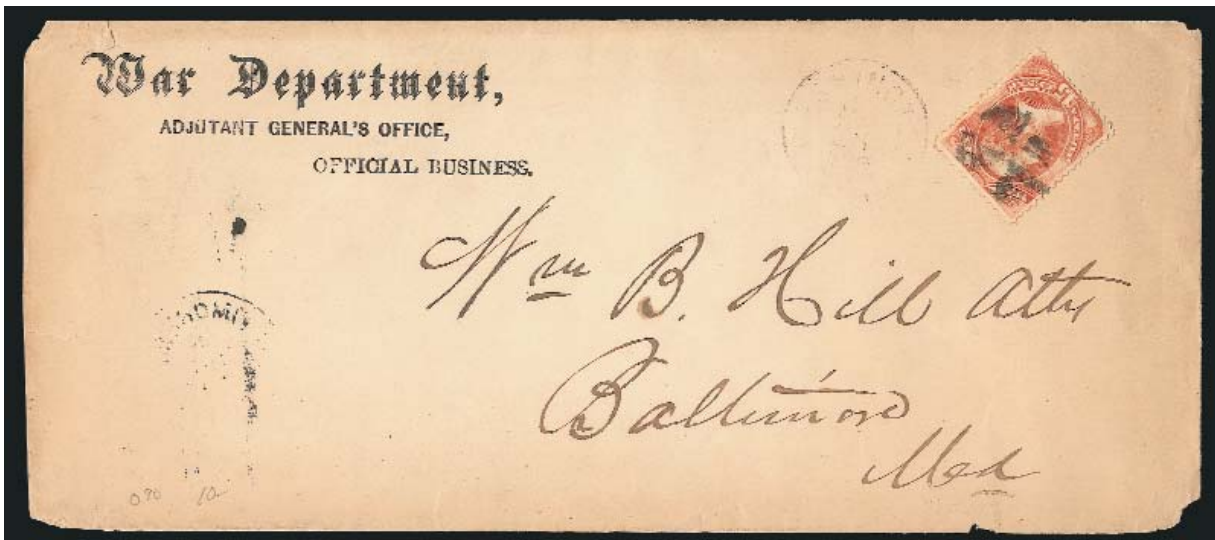 War Department,
ADJUTANT GENERAL'S OFFICE,
OFFICIAL BUSINESS.
Wm B. Hill Atty
Baltimore
Md